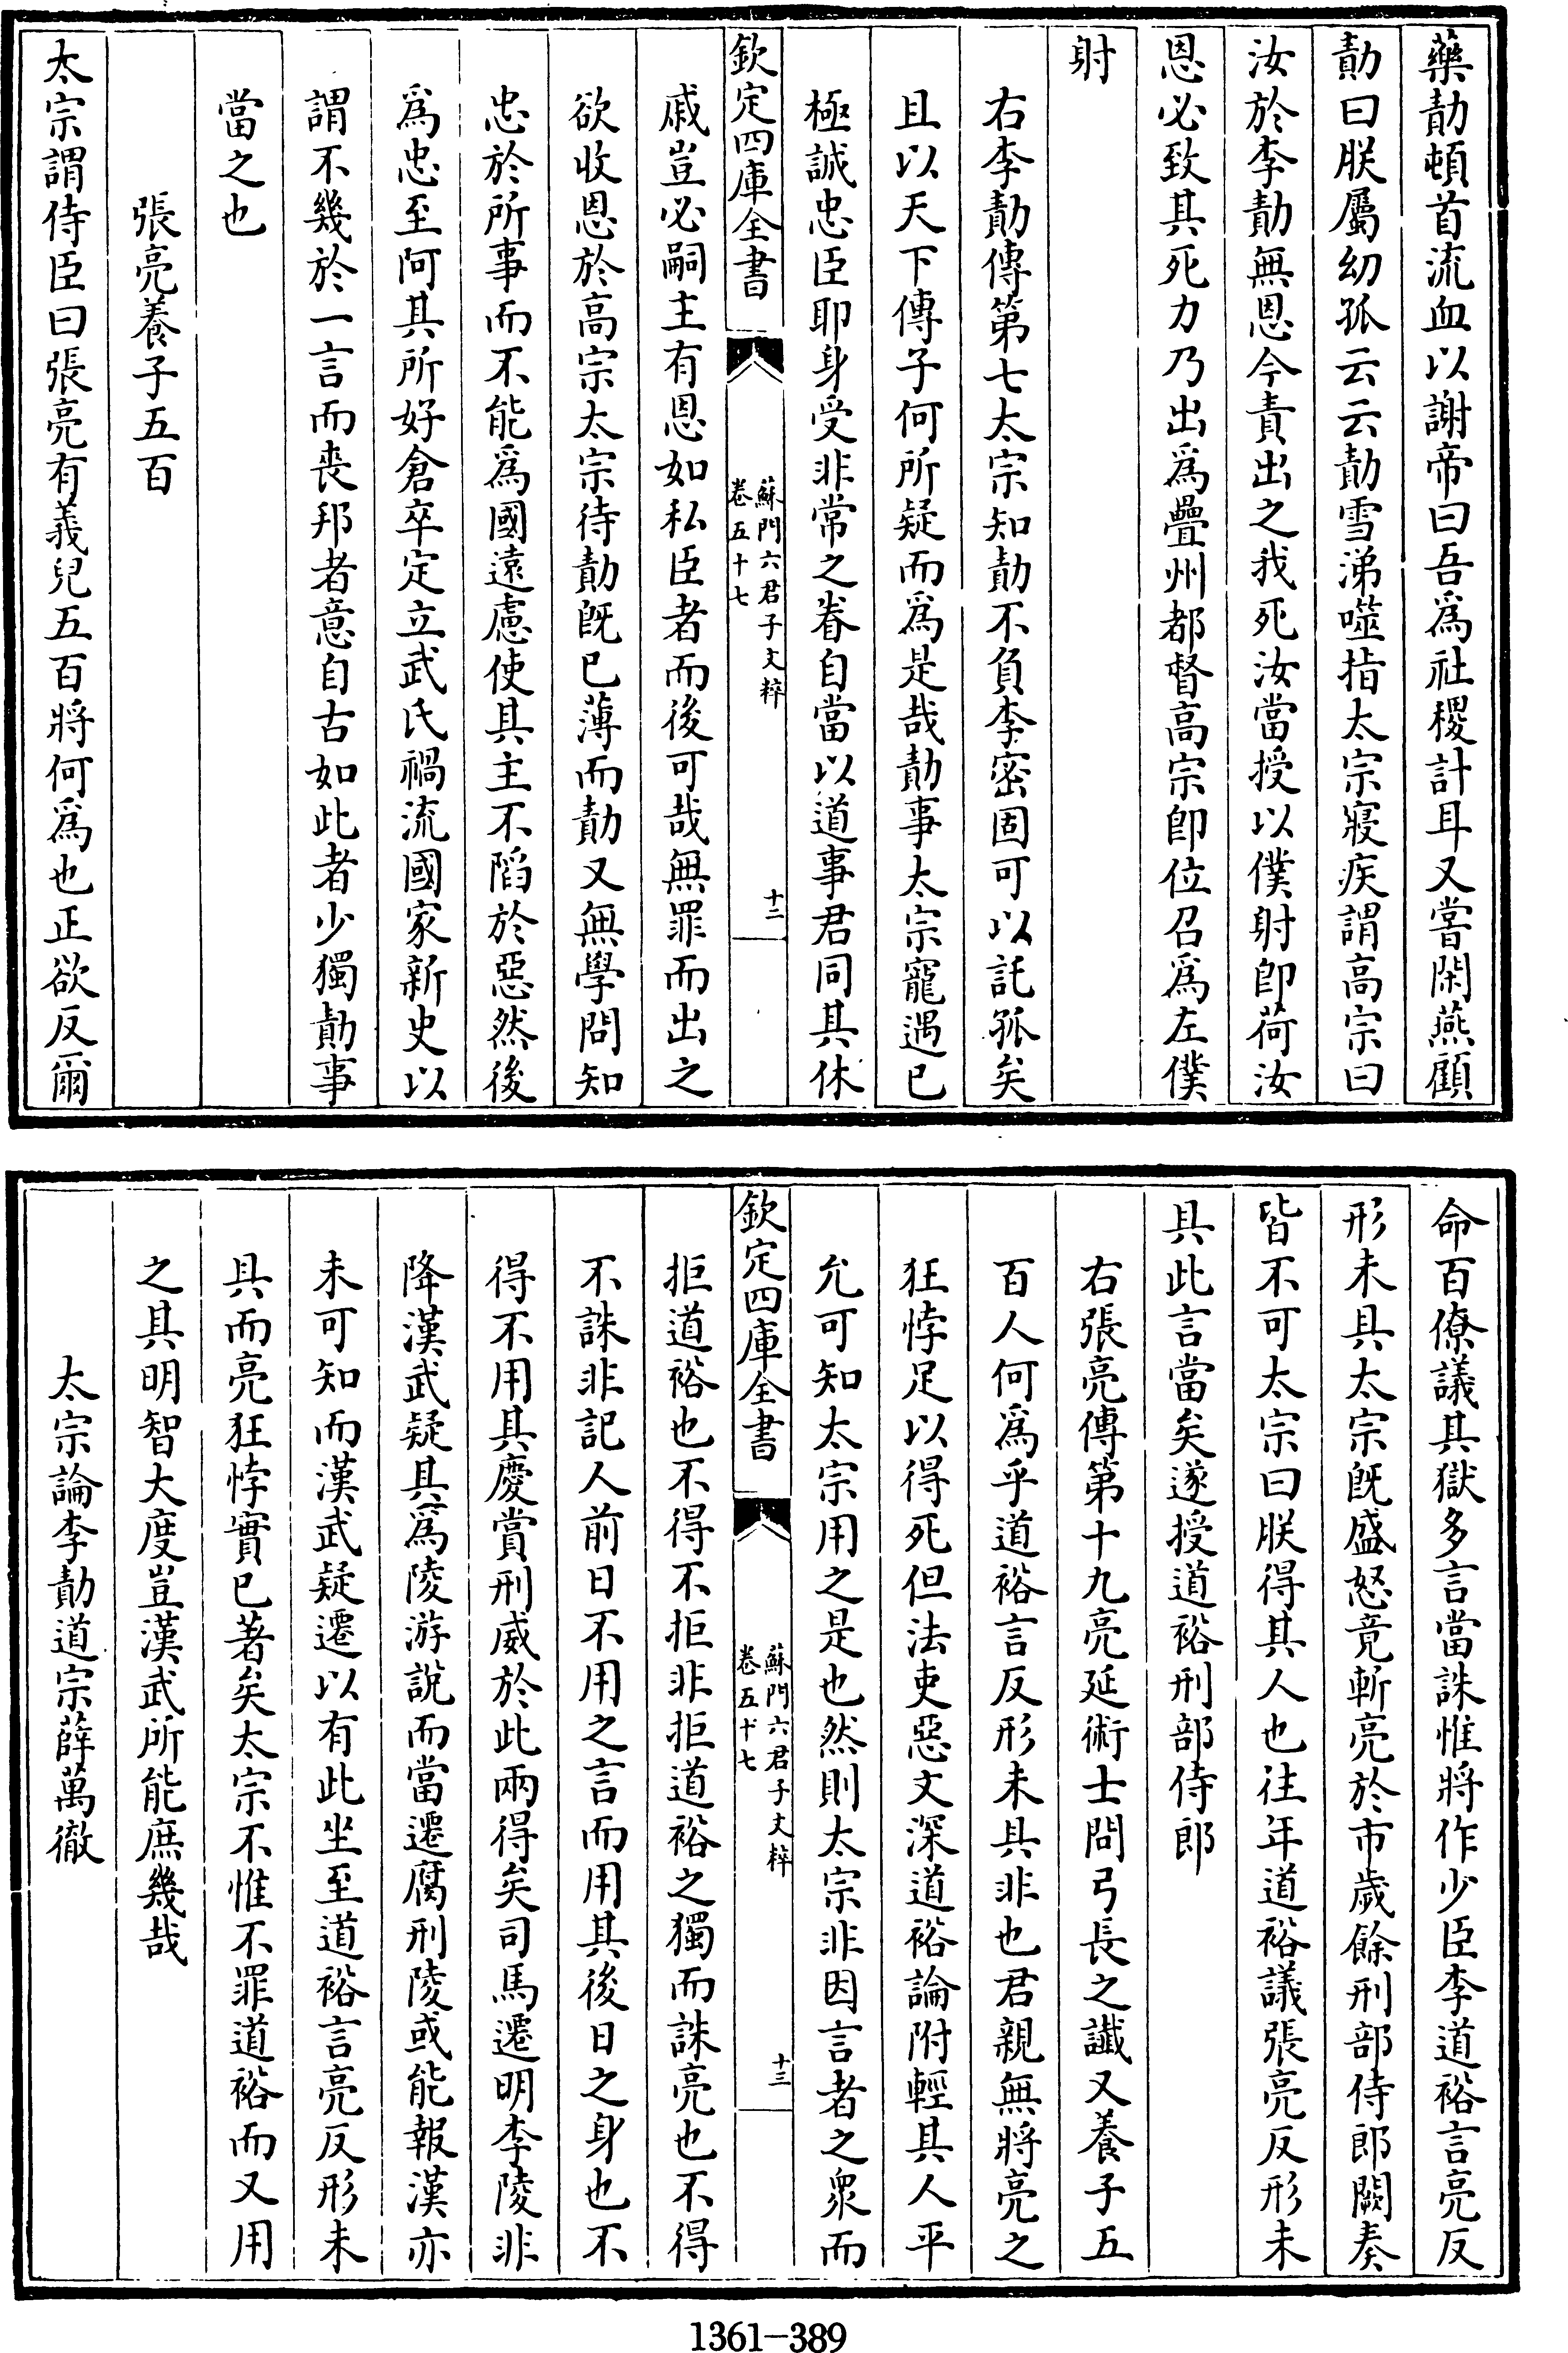 藥勣頓首流血以謝帝曰吾爲社稷計耳又嘗閑燕顧
勣曰朕屬幼孤云云勣雪涕噬指太宗寢疾謂高宗曰
汝於李勣無恩今責出之我死汝當授以僕射卽荷汝
恩必致其死力乃出爲疊州都督高宗卽位召爲左僕
射
右李勣傳第七太宗知勣不負李密固可以託孤矣
且以天下傳子何所疑而爲是哉勣事太宗寵遇已
極誠忠臣耶身受非常之眷自當以道事君同其休
欽定四庫全書
蘇門六君子文粹
卷五十七
十二
戚豈必嗣主有恩如私臣者而後可哉無罪而出之
欲收恩於高宗太宗待勣旣已薄而勣又無學問知
忠於所事而不能爲國遠慮使其主不陷於惡然後
爲忠至阿其所好倉卒定立武氏禍流國家新史以
謂不幾於一言而喪邦者意自古如此者少獨勣事
當之也
張亮養子五百
太宗謂侍臣曰張亮有義兒五百將何爲也正欲反爾
命百僚議其獄多言當誅惟將作少臣李道裕言亮反
形未具太宗旣盛怒竟斬亮於市歲餘刑部侍郎闕奏
皆不可太宗曰朕得其人也往年道裕議張亮反形未
具此言當矣遂授道裕刑部侍郎
右張亮傳第十九亮延術士問弓長之讖又養子五
百人何爲乎道裕言反形未具非也君親無將亮之
狂悖足以得死但法吏惡文深道裕論附輕其人平
允可知太宗用之是也然則太宗非因言者之衆而
欽定四庫全書
蘇門六君子文粹
卷五十七
十三
拒道裕也不得不拒非拒道裕之獨而誅亮也不得
不誅非記人前日不用之言而用其後日之身也不
得不用其慶賞刑威於此兩得矣司馬遷明李陵非
降漢武疑其爲陵游說而當遷腐刑陵或能報漢亦
未可知而漢武疑遷以有此坐至道裕言亮反形未
具而亮狂悖實已著矣太宗不惟不罪道裕而又用
之其明智大度豈漢武所能庶幾哉
太宗論李勣道宗薛萬徹
1361-389